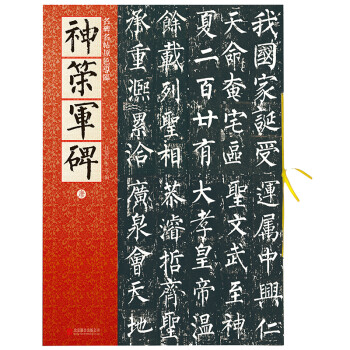 我國家誕受運属中興仁
天命奄宅區聖文武至神
夏二百廿有大孝皇帝温
餘載列聖相恭濬哲齊聖
承重熙累洽廣泉會天地
神策軍碑